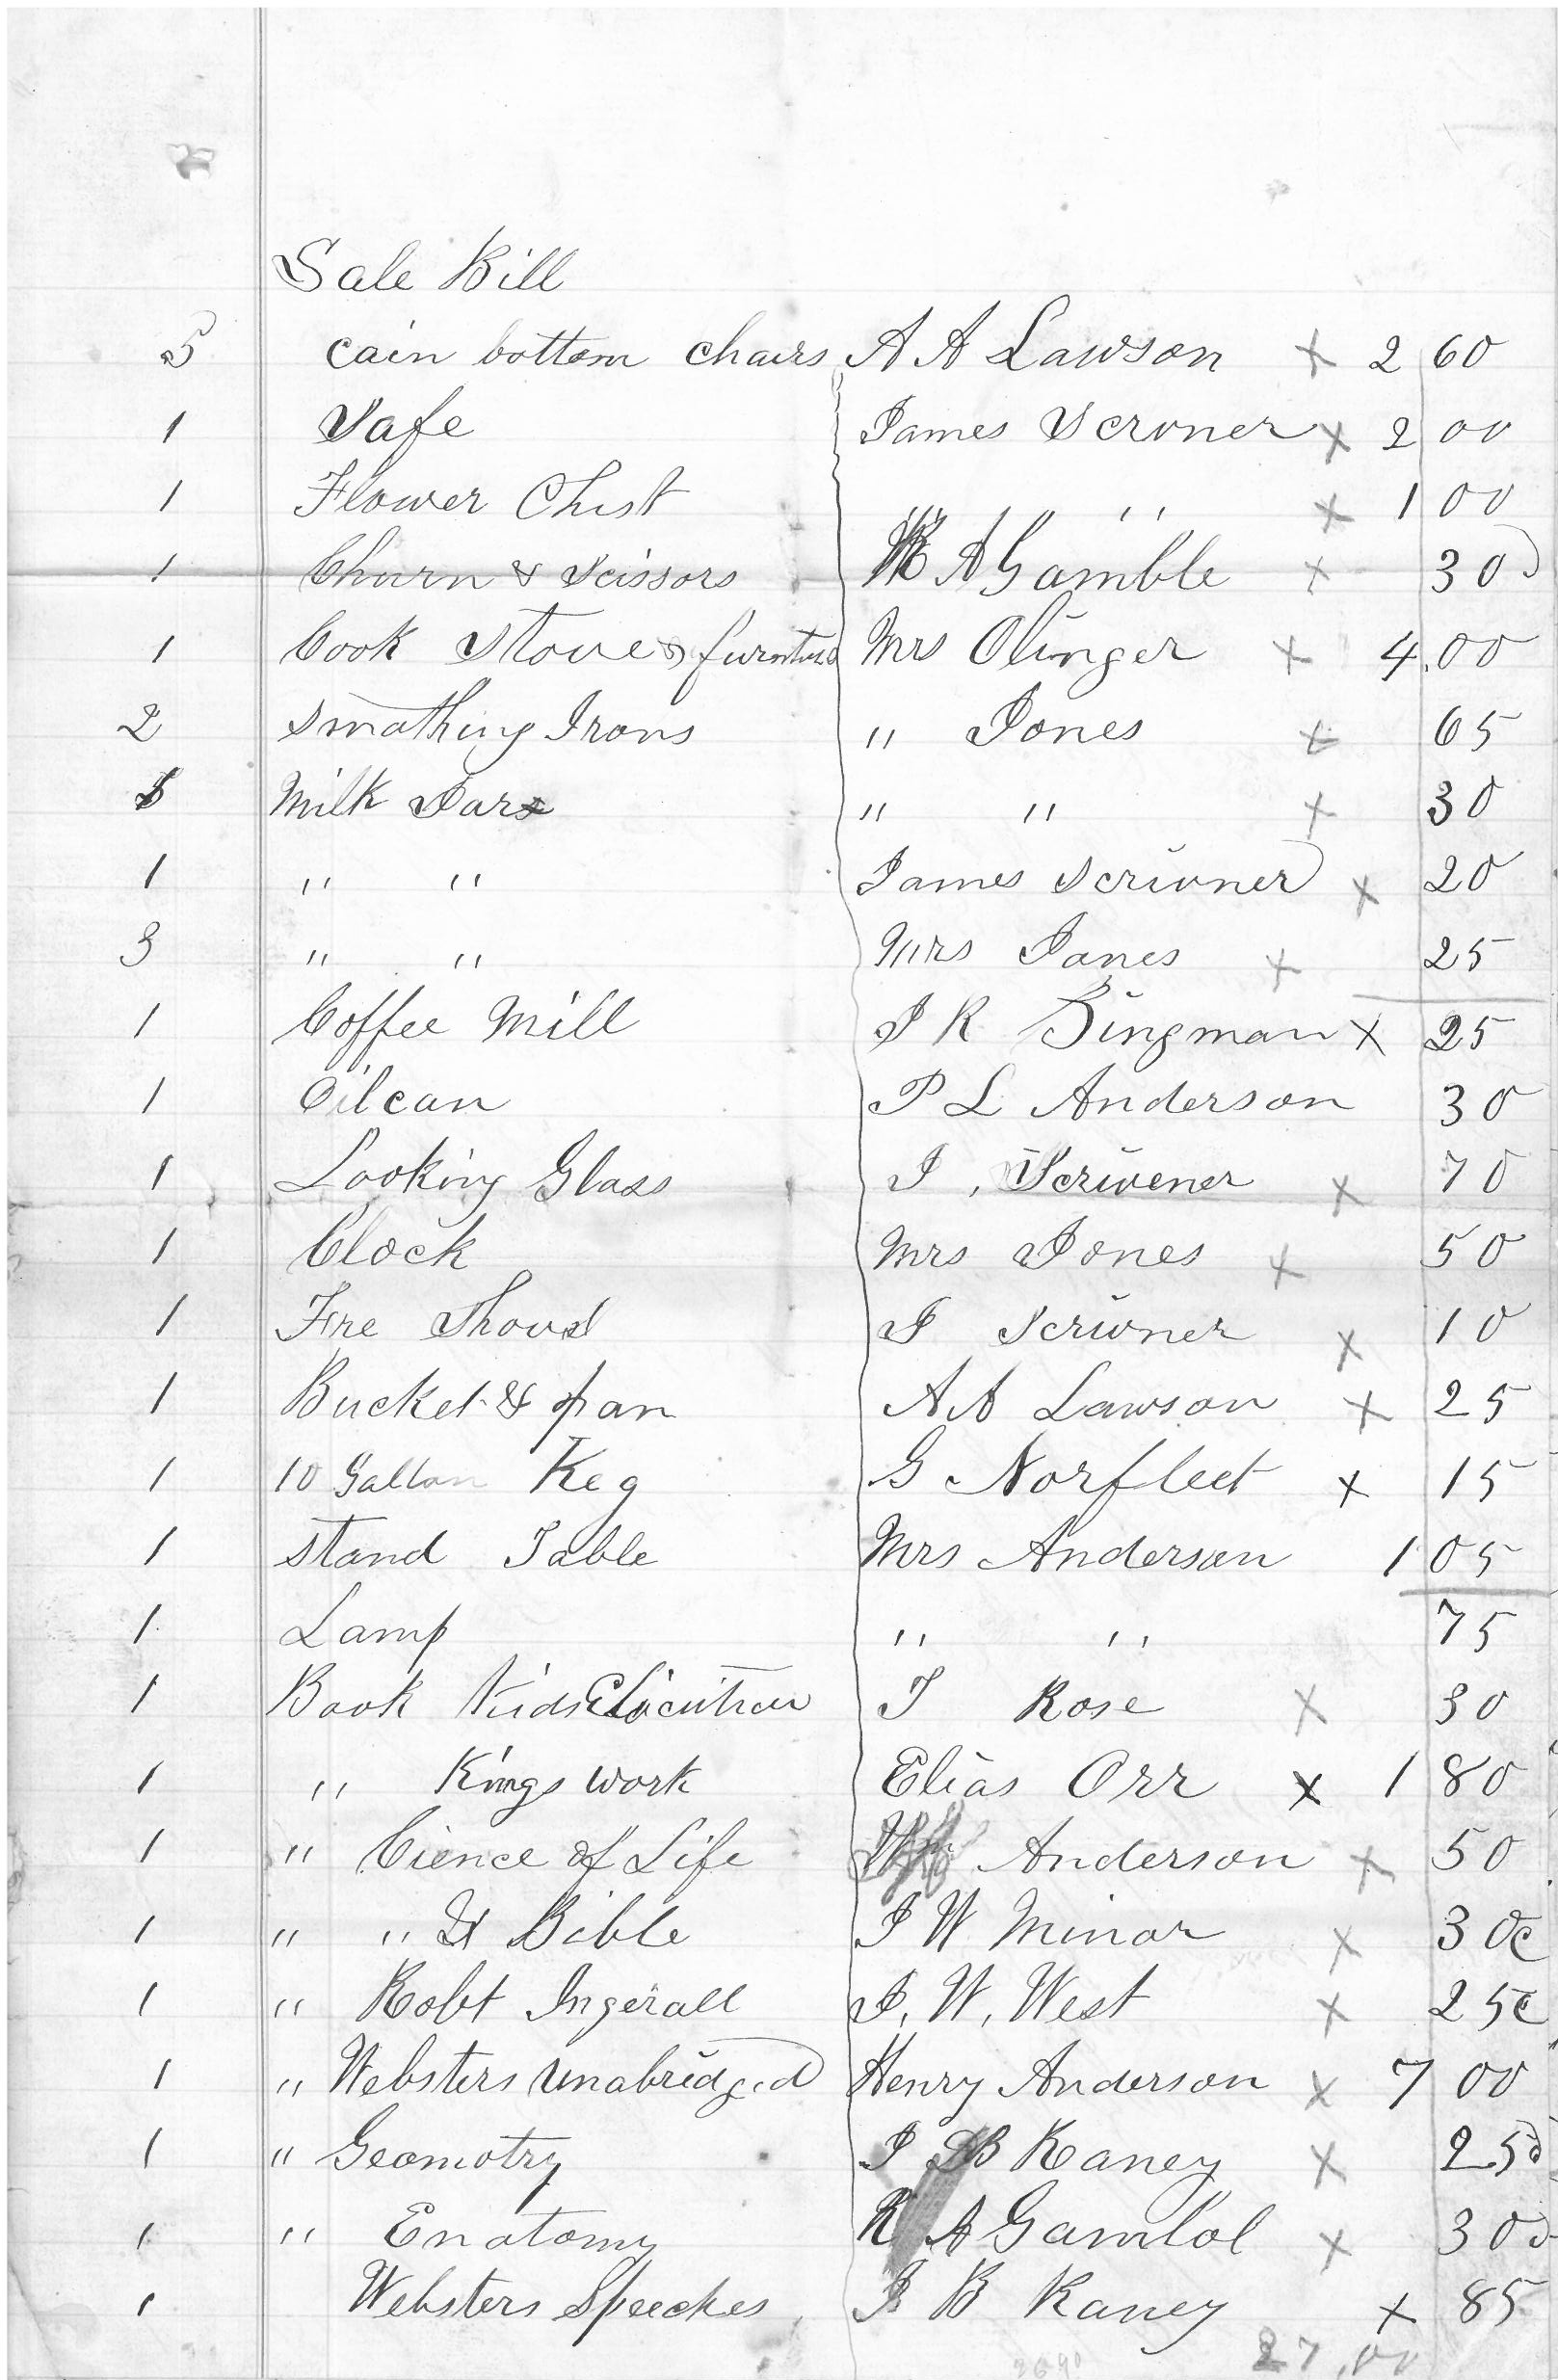 Sale Bill
5 cain bottom chairs A A Lawson x 2 60
1 Safe James Scrvner x 2 00
1 Flower Chist " " x 1 00
1 Churn & Scissors R A Gamble x 30
1 Cook Stove & furnture Mrs Olinger x 4.00
2 Smothing Irons " Jones x 65
Milk Jars " " x 30
1 " " James Scrivner x 20
3 " " Mrs Jones x 25
1 Coffee Mill J R Bingman x 25
1 Oilcan P L Anderson 30
1 Looking Glass J, Scrivener x 70
1 Clock Mrs Jones x 50
1 Fire Shovel J Scrivner x 10
1 Bucket & pan A A Lawson x 25
1 10 Gallon Keg G Norfleet x 15
1 Stand Table Mrs Anderson 1 05
1 Lamp " " 75
1 Book Kids Elocution J Rose x 30
1 " Kings work Elias Orr x 1 80
1 " Cience of Life Wm Anderson x 50
1 " " & Bible J W Minor x 30c
1 " Robt Ingerall J. W. West x 25c
1 " Websters Unabridged Henry Anderson x 7 00
1 " Geomotry J B Raney x 25
1 " Enatomy R A Gambol x 30
1 Websters Speeches J B Raney x 85
27.00